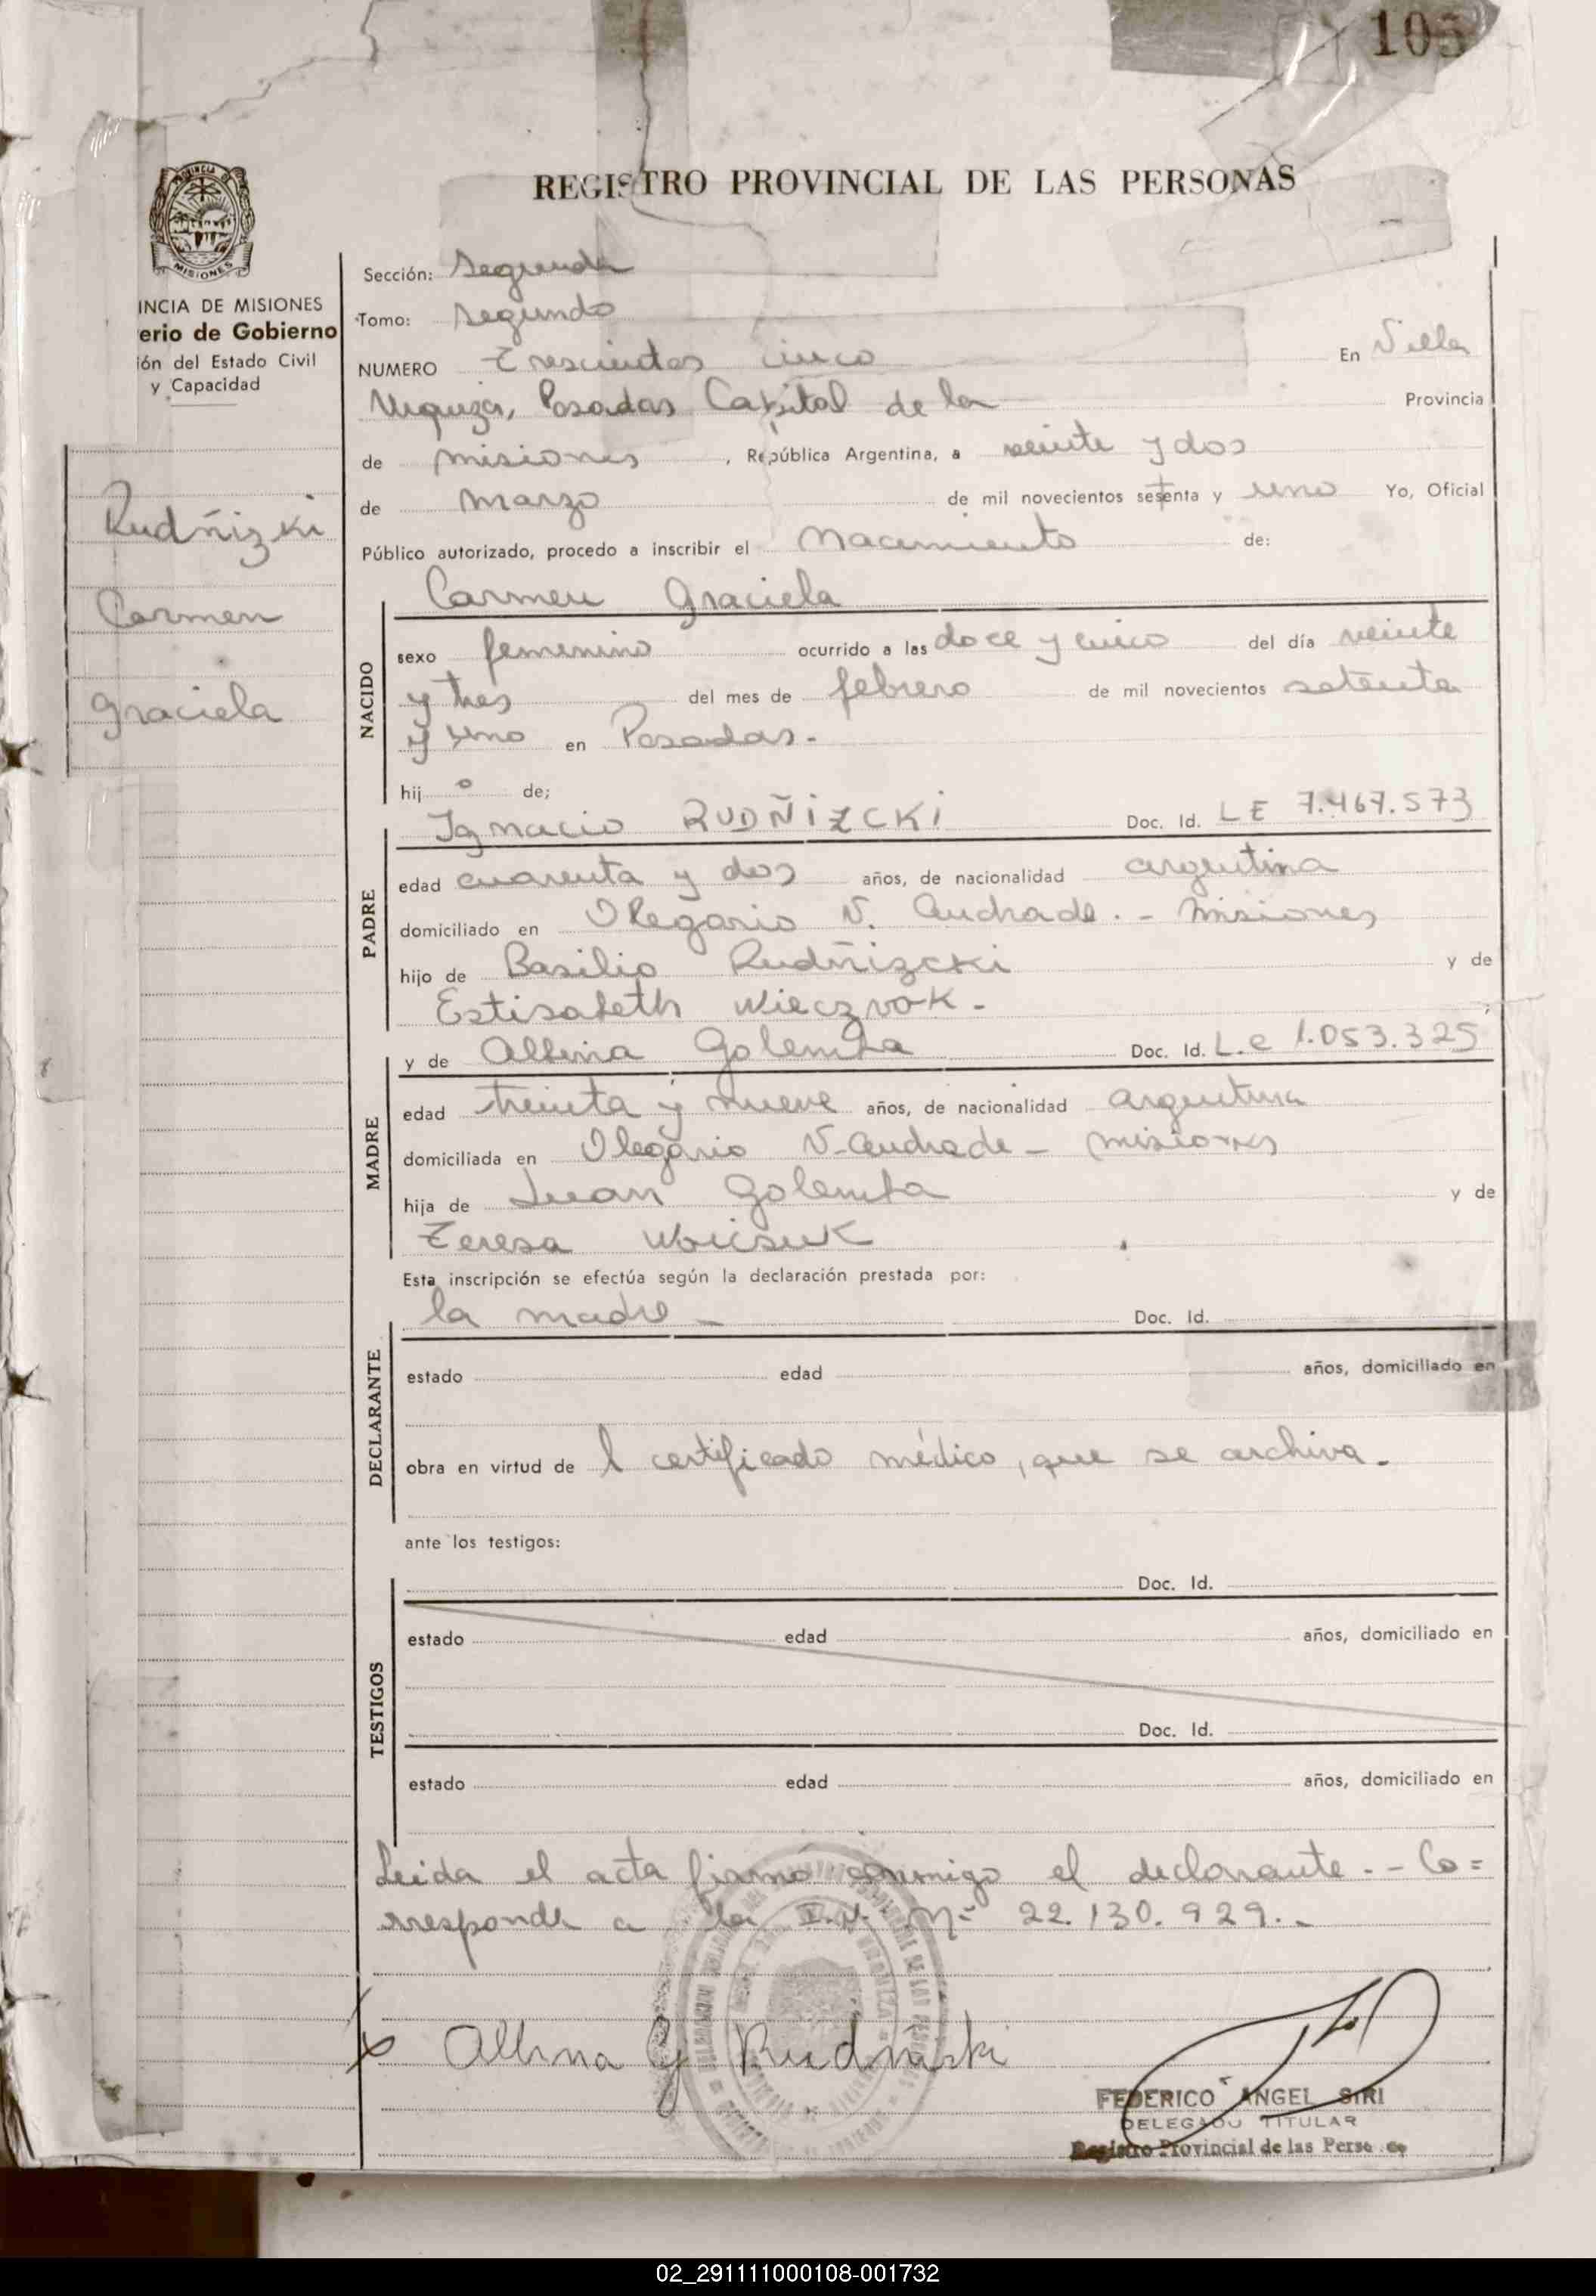 105
REGISTRO PROVINCIAL DE LAS PERSONAS
MISIONES
INCIA DE MISIONES
erio de Gobierno
ión del Estado Civil
y Capacidad
Sección: Segunda
Tomo: Segundo
NUMERO Trescientos cinco En Villa
Urquiza, Posadas Capital de la Provincia
de misiones, República Argentina, a veinte y dos
de marzo de mil novecientos setenta y uno Yo, Oficial
Público autorizado, procedo a inscribir el Nacimiento de:
Rudñizki
Carmen
Graciela
NACIDO
Carmen Graciela
sexo femenino ocurrido a las doce y cinco del día veinte
y tres del mes de febrero de mil novecientos setenta
y uno en Posadas.-
hij a de;
PADRE
Ignacio RUDÑIZCKI Doc. Id. LE 7.467.573
edad cuarenta y dos años, de nacionalidad argentina
domiciliado en Olegario V. Andrade.- Misiones
hijo de Basilio Rudñizcki y de
Estisabeth Wieczvok.-
MADRE
y de Albina Golemba Doc. Id. L.C 1.053.325
edad treinta y nueve años, de nacionalidad argentina
domiciliada en Olegario V. Andrade - misiones
hija de Juan Golemba y de
Teresa
Esta inscripción se efectúa según la declaración prestada por:
DECLARANTE
la madre - Doc. Id.
estado edad años, domiciliado en
obra en virtud de l certificado médico, que se archiva.-
ante los testigos:
TESTIGOS
Doc. Id.
estado edad años, domiciliado en
Doc. Id.
estado edad años, domiciliado en
Leida el acta firma conmigo el declarante.- Co=
rresponde a la I.N. Nº 22.130.929.-
x Albina G Rudñiski
FEDERICO ANGEL SIRI
DELEGADO TITULAR
Registro Provincial de las Perso
02_291111000108-001732